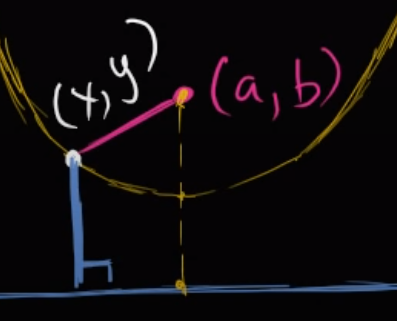 (x,y)
(a,b)